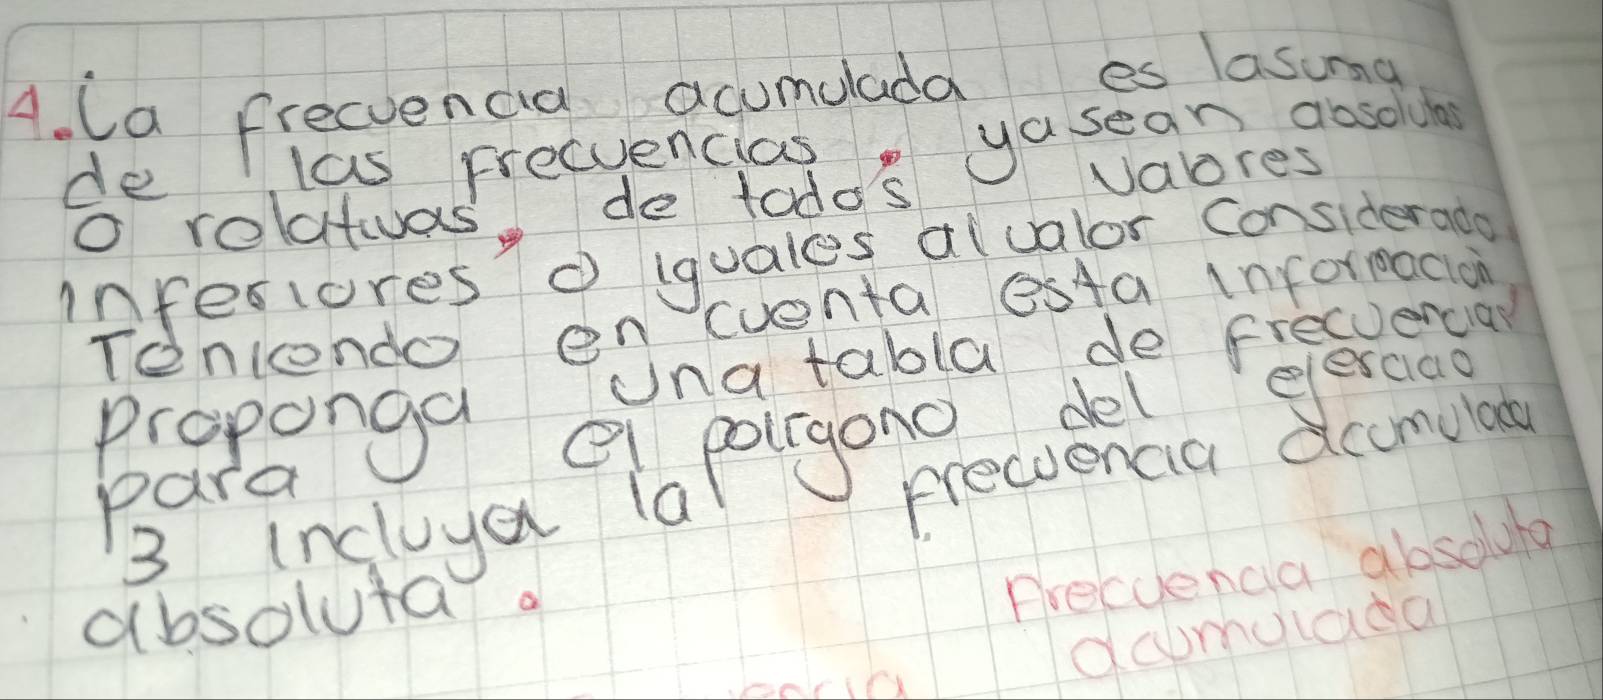 4. La frecuencia acumulada es lasuma
de las frecuencias, yasean absolutas
o relativas, de todos valores
inferiores o iguales al valor considerado.
Teniendo en cuenta esta información,
proponga una tabla de frecuencias
para el polígono del ejercicio
3 incluya la frecuencia acumulada
absoluta.
Frecuencia absoluta
acumulada